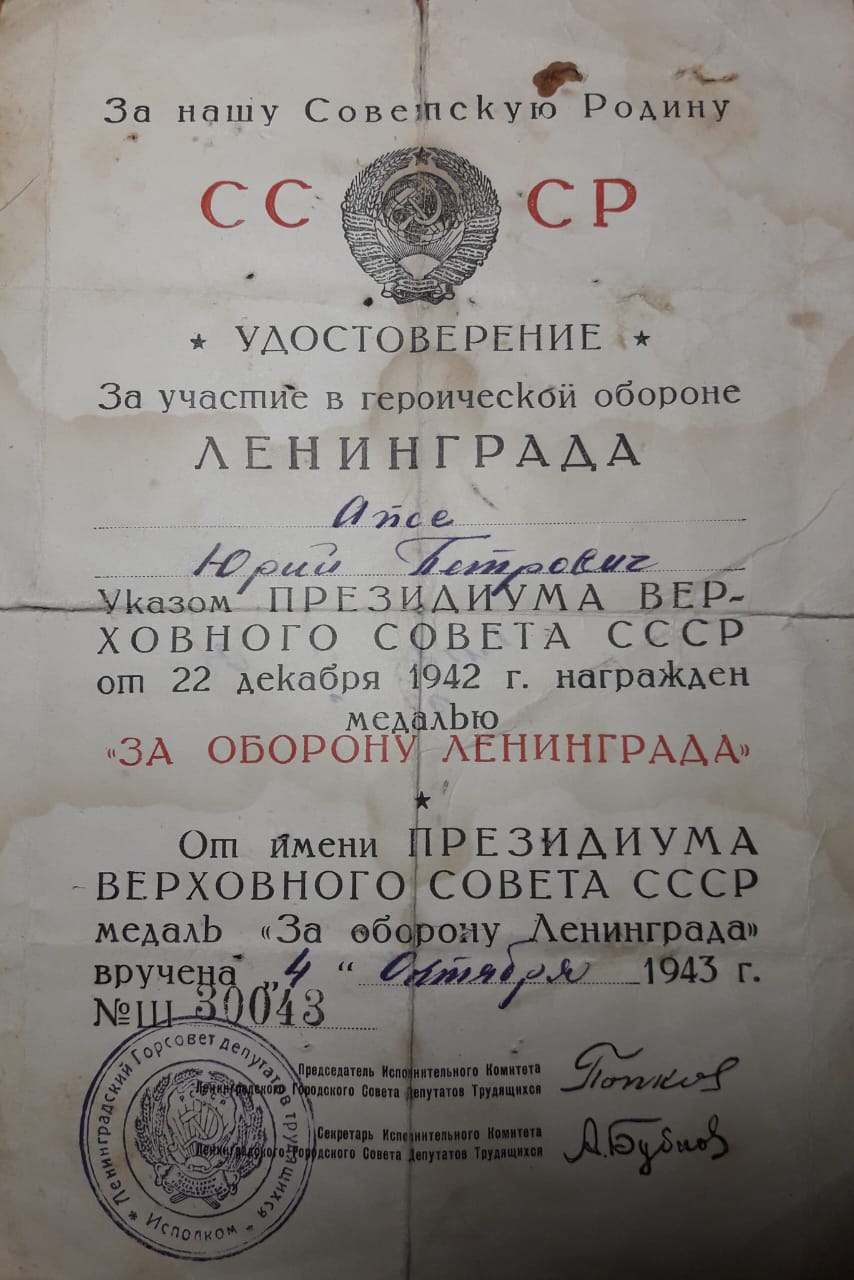 За нашу Советскую Родину
СССР
★ УДОСТОВЕРЕНИЕ ★
За участие в героической обороне
ЛЕНИНГРАДА
Апсе
Юрий Петрович
Указом ПРЕЗИДИУМА ВЕР-
ХОВНОГО СОВЕТА СССР
от 22 декабря 1942 г. награжден
медалью
«ЗА ОБОРОНУ ЛЕНИНГРАДА»
★
От имени ПРЕЗИДИУМА
ВЕРХОВНОГО СОВЕТА СССР
медаль «За оборону Ленинграда»
вручена „4“ Октября 1943 г.
№ Ш 30043
Председатель Исполнительного Комитета
Ленинградского Городского Совета Депутатов Трудящихся
Попков
Секретарь Исполнительного Комитета
Ленинградского Городского Совета Депутатов Трудящихся
А.Бубнов
★ Ленинградский Горсовет депутатов трудящихся
Исполком